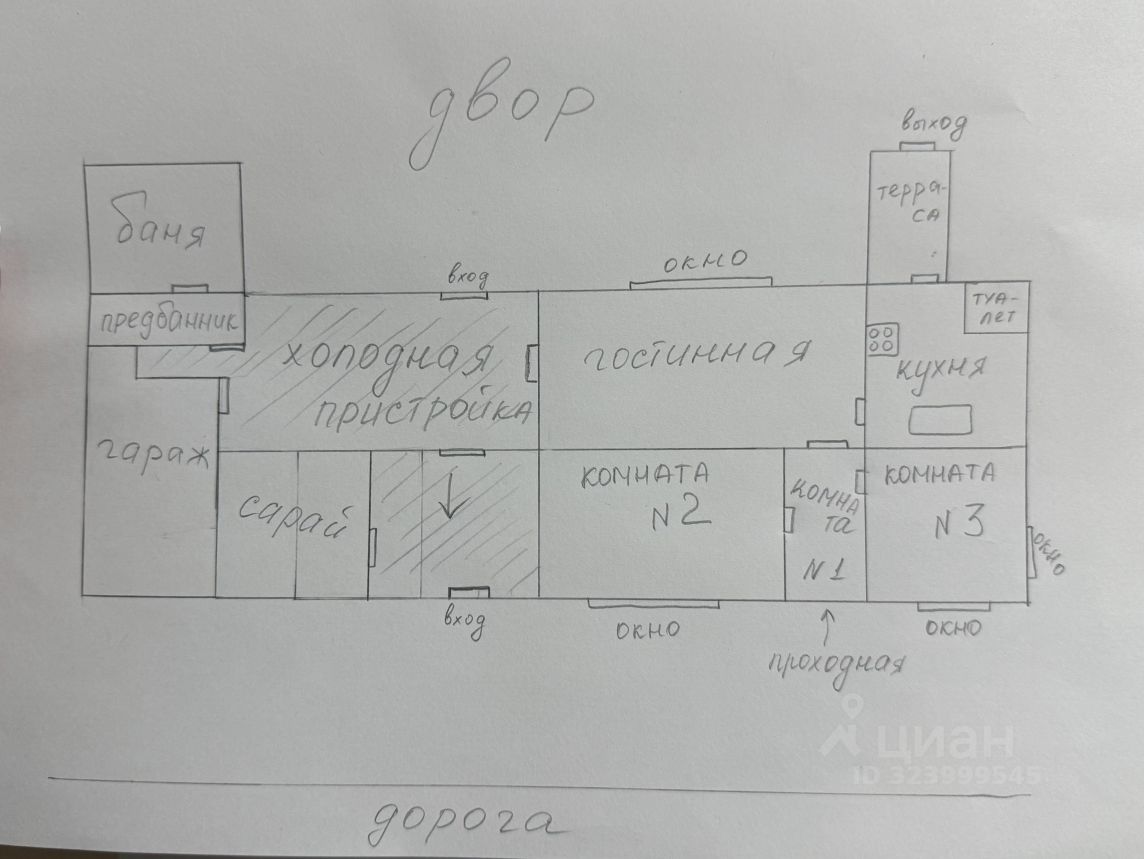 двор
выход
терра-
са
баня
вход
окно
туа-
лет
предбанник
холодная
пристройка
гостинная
кухня
гараж
сарай
комната
N2
комна
та
N1
комната
N3
окно
вход
окно
окно
проходная
циан
ID 323999545
дорога